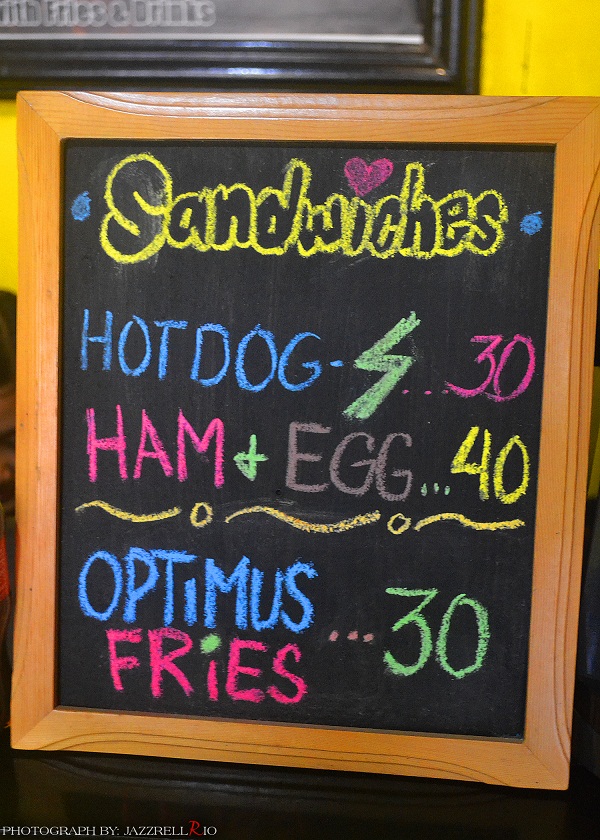 ith Fries & Drinks
Sandwiches
HOTDOG-...30
HAM + EGG...40
OPTIMUS
FRiES ...30
PHOTOGRAPH BY: JAZZRELLRIO